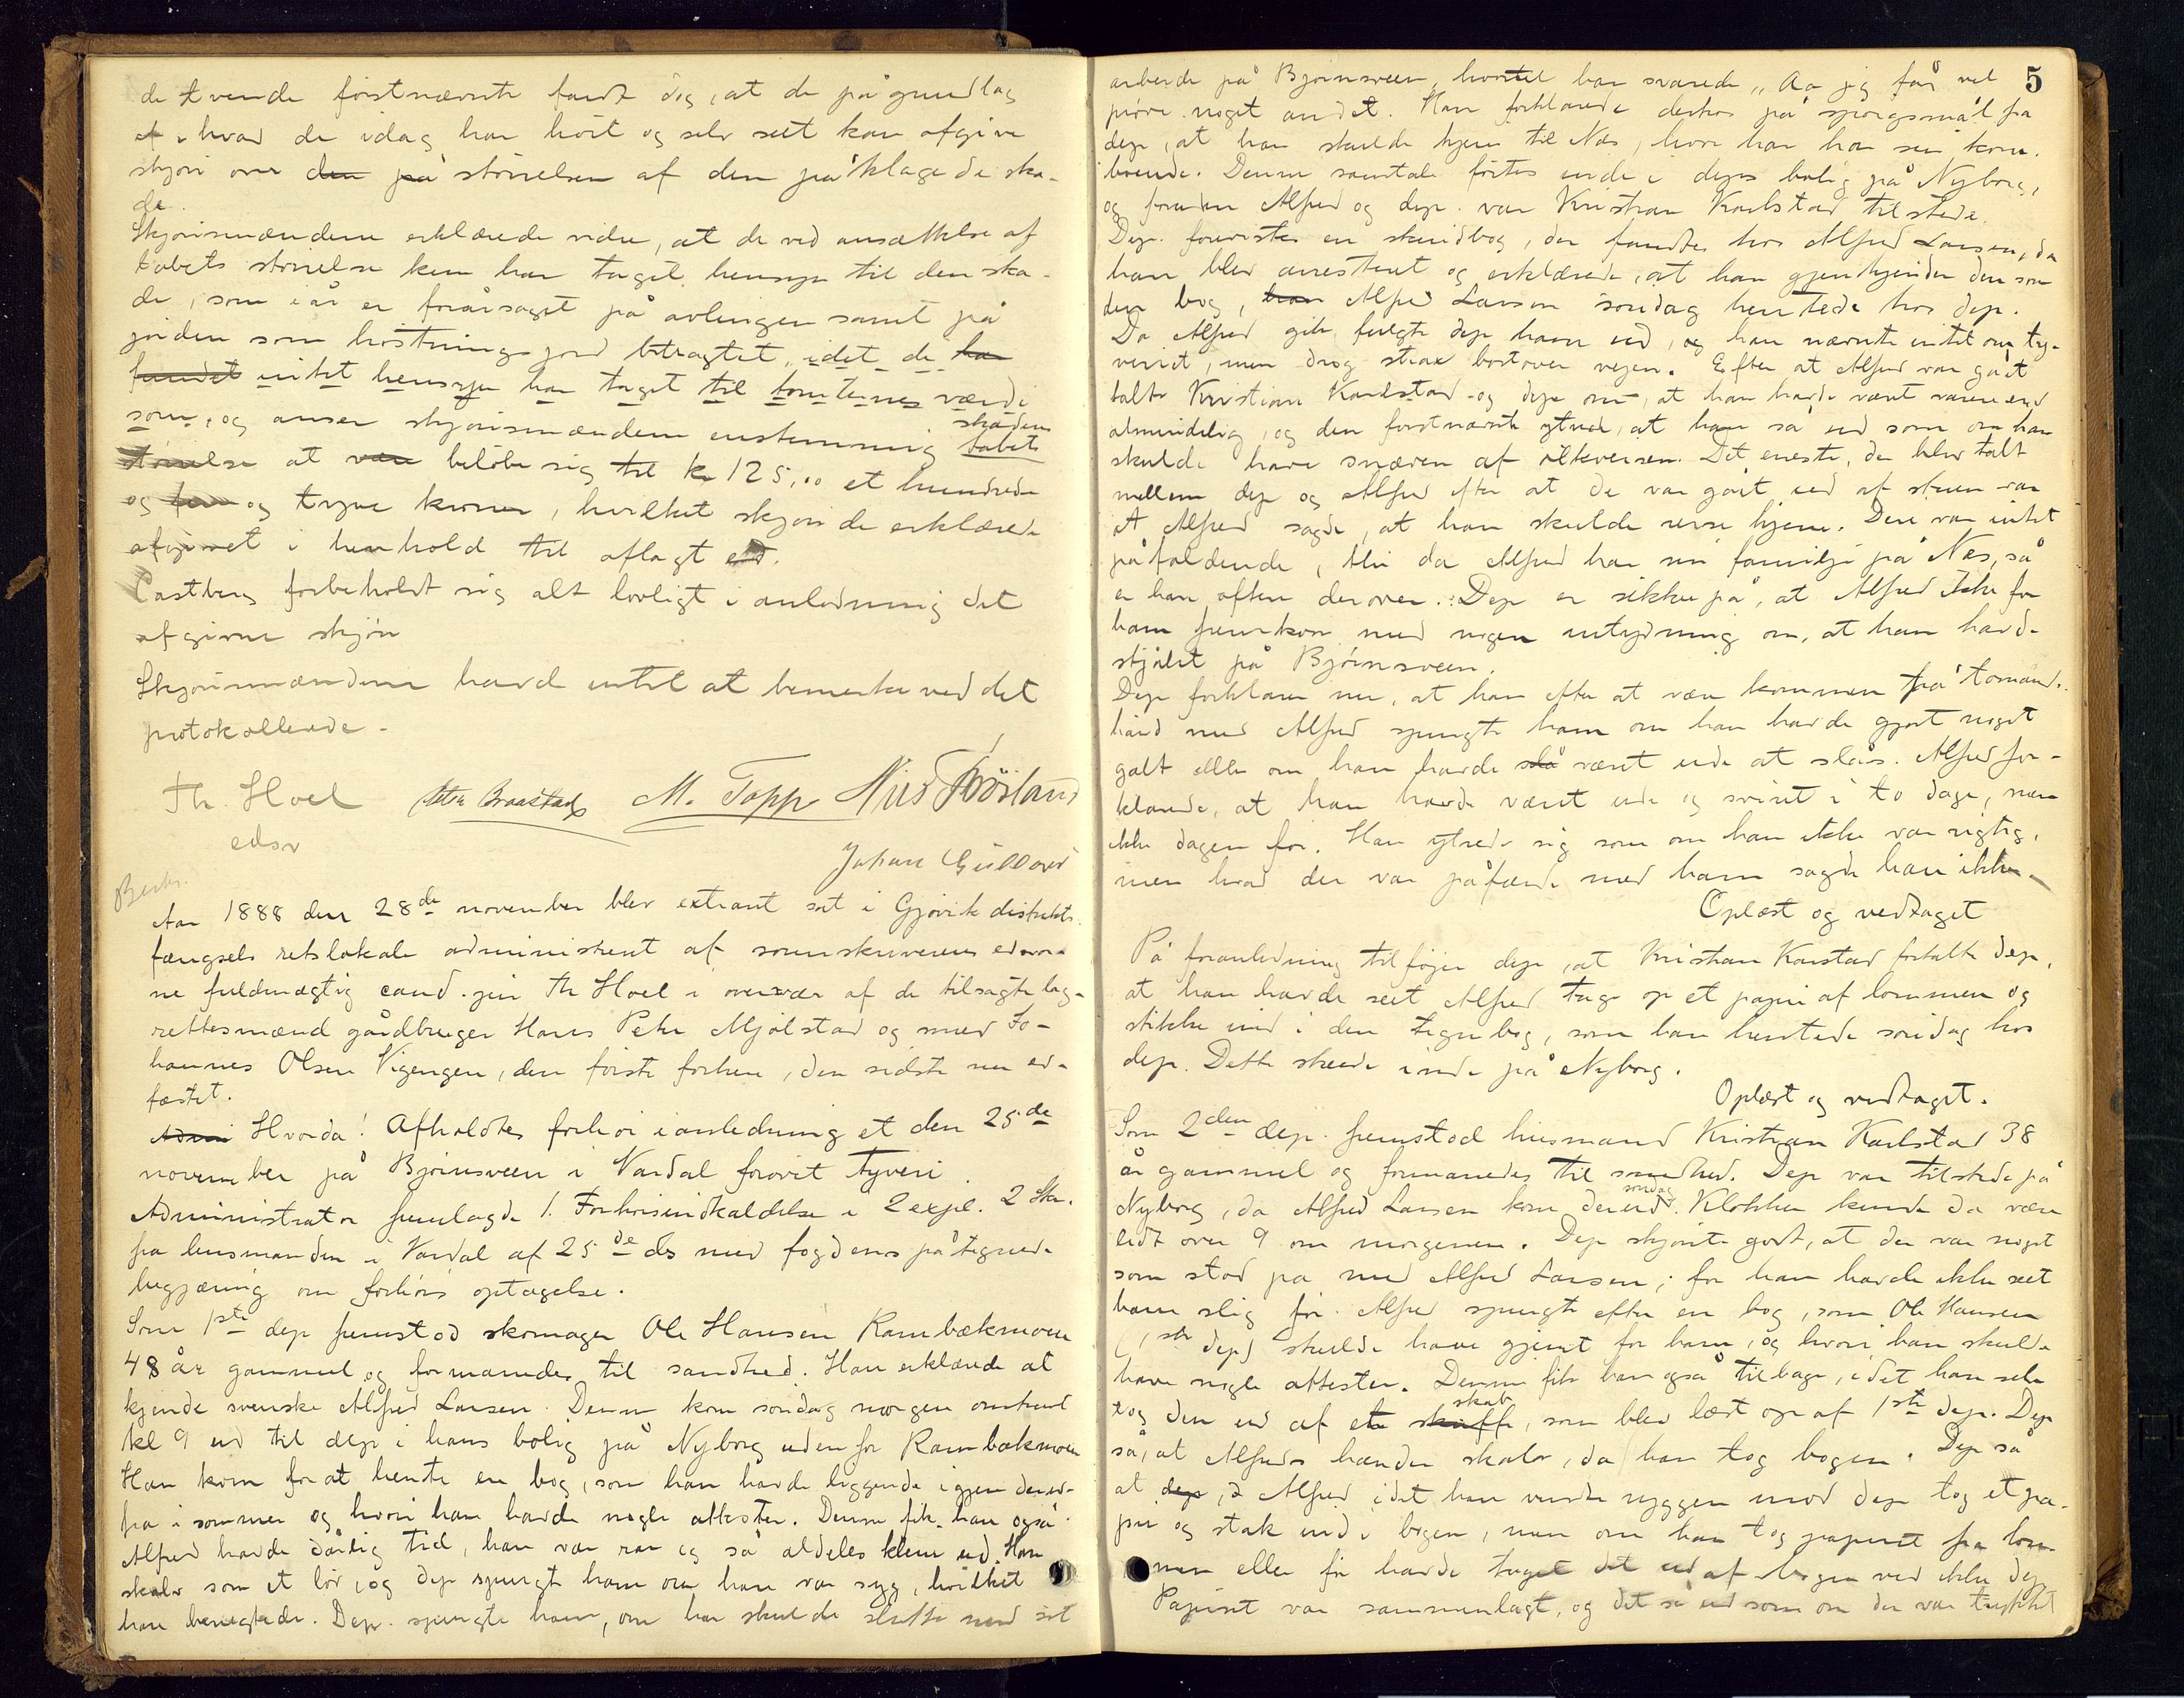 de tvende förstnævnte fandt dog, at de på grundlag
af hvad de idag har hört og selv seet kan afgive
skjön over den på störrelsen af den påklagede ska-
de.
Skjönsmændene erklærede videre, at de ved ansættelse af
tabets störrelse kun har taget hensyn til den ska-
de, som iår er forårsaget på avlingen samt på
jorden som höstningsjord betragtet, idet de har
fundet intet hensyn har taget til tomternes værdi
som, og anser skjönsmændene enstemmig tabets skadens
störrelse at være belöbe sig til kr 125,00 et hundrede
og fem og tyve kroner, hvilket skjön de erklærede
afgivet i henhold til aflagt ed.
Castberg forbeholdt sig alt lovligt i anledning det
afgivne skjön
Skjönsmændene havde intet at bemerke ved det
protokollerede.
Th. Hoel Peter Braastad M. Topp Nils
edsv
Johan Gulloved
Beskr.
Aar 1888 den 28de november blev extraret sat i Gjövik distrikts-
fængsels retslokale administreret af sorenskriverens edsvor-
ne fuldmægtig cand. jur Th Hoel i overvær af de tilsagte lag-
rettesmænd gårdbruger Hans Peter Mjölstad og smed Jo-
hannes Olsen Vigengen, den förste forhen, den sidste nu ed-
fæstet.
Admi Hvorda! Afholdtes forhör i anledning et den 25de
november på Björnsveen i Vardal forövet tyveri.
Administrator fremlagde 1. Forhörsindkaldelse i 2 expl. 2 Skr.
fra lensmanden i Vardal af 25de ds med fogdens påtegnede
begjæring om forhörs optagelse.
Som 1ste dep fremstod skomager Ole Hansen Rambækmoen
48 år gammel og formanedes til sandhed. Han erklærede at
kjende svenske Alfred Larsen. Denne kom söndag morgen omtrent
kl 9 ud til dep i hans bolig på Nyborg udenfor Rambækmoen
Han kom for at hente en bog, som han havde liggende igjen derud-
fra i sommer og hvori han havde nogle attester. Denne fik han også
Alfred havde dårlig tid, han var rar og så aldeles klein ud. Han
skalv som et löv, og dep spurgt ham om han var syg, hvilket
han benegtede. Dep. spurgte ham, om han skulde slutte med sit
5
arbeide på Björnsveen, hvortil han svarede „Aa jeg får vel
pröve noget andet. Han forklarede derhos på spörgsmål fra
dep, at han skulde hjem til Næs, hvor han har sin kone
boende. Denne samtale förtes inde i deps bolig på Nyborg,
og foruden Alfred og dep. var Kristian Karlstad tilstede.
Dep. forevistes en skindbog, der fandtes hos Alfred Larsen, da
han blev arresteret og erklærede, at han gjenkjender den som
den bog, han Alfred Larsen söndag hentede hos dep.
Da Alfred gik, fulgte dep ham ud, og han nævnte intet om ty-
veriet, men drog strax bortover vejen. Efter at Alfred var gået
talte Kristian Karlstad og dep om, at han havde været rarere end
almindelig, og den förstnævnte ytrede, at han så ud som om han
skulde have snæven af ölkveisen. Det eneste, der blev talt
mellem dep og Alfred efter at de var gået ud af stuen var
at Alfred sagde, at han skulde reise hjem. Deri var intet
påfaldende, thi da Alfred har sin familje på Næs, så
er han ofte derover. Dep er sikker på, at Alfred ikke for
ham fremkom med nogen antydning om, at han havde
stjålet på Björnsveen.
Dep forklarer nu, at han efter at være kommen på tomands-
hånd med Alfred spurgte ham om han havde gjort noget
galt eller om han havde slå været ude at slås. Alfred for-
klarede, at han havde været ude og sviret i to dage, men
ikke dagen för. Han ytrede sig som om han ikke var rigtig,
men hvad der var påfærde med ham sagde han ikke.
Oplæst og vedtaget
På foranledning tilföjer dep, at Kristian Karstad fortalte dep,
at han havde seet Alfred tage op et papir af lommen og
stikke ind i den tegnebog, som han hentede söndag hos
dep. Dette skeede inde på Nyborg.
Oplæst og vedtaget.
Som 2den dep. fremstod husmand Kristian Karlstad 38
år gammel og formanedes til sandhed. Dep var tilstede på
Nyborg, da Alfred Larsen kom derud söndag. Klokken kunde da være
lidt over 9 om morgenen. Dep skjönte godt, at der var noget
som stod på med Alfred Larsen; for han havde ikke seet
ham slig för. Alfred spurgte efter en bog, som Ole Hansen
(1ste dep) skulde have gjemt for ham, og hvori han skulde
have nogle attester. Denne fik han også tilbage, idet han selv
tog den ud af et skuffe skab, som blev læst op af 1ste dep. Dep
så, at Alfreds hænder skalv, da han tog bogen. Dep så
at dep, Alfred idet han vendte ryggen mod dep tog et pa-
pir og stak ind i bogen, men om han tog papiret fra lom-
men eller för havde taget det ud af bogen ved ikke dep
Papiret var sammenlagt, og det så ud som om der var trykket